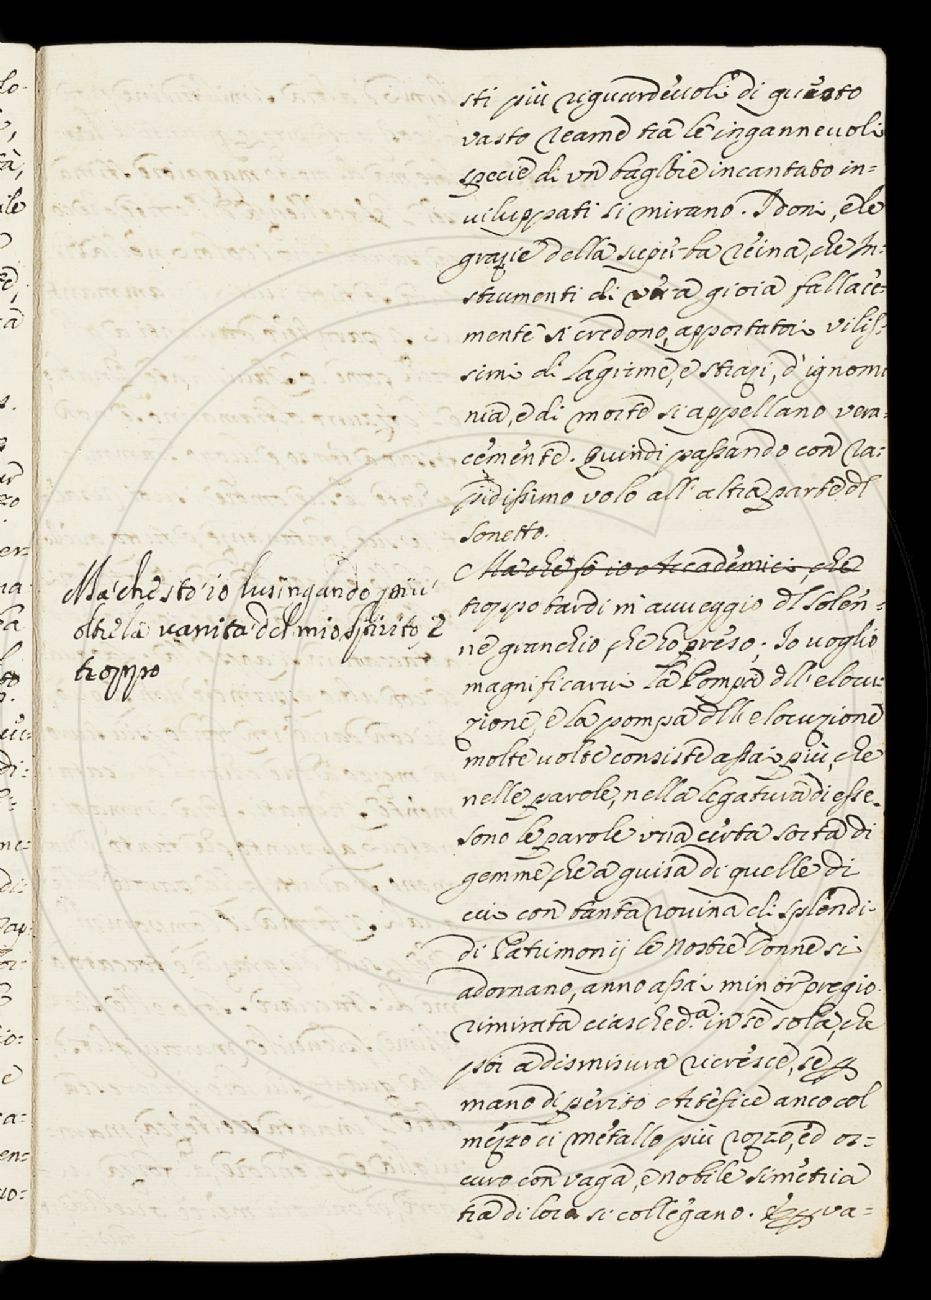 sti più riguardeuoli di questo
vasto reame tra le ingannevoli
specie di vn bagliore incantato in=
viluppati si mirano. I doni, e le
grazie della superba reina, che In=
strumenti di vera gioia fallace=
mente si credono, apportatori vilis=
simi di lagrime, e strazi, d'ignomi
nia, e di morte si appellano vera=
cemente. Quindi passando con ra=
pidissimo volo all'altra parte dl
sonetto.
Ma che fò io o Accademici, che
Ma che sto io lusingando più
oltre la vanità del mio spirito È
troppo
troppo tardi m'auueggio dl solen=
ne granchio, che ho preso. Io voglio
magnificarui la Pompa dll'elocu=
zione, e la pompa dll'elocuzione
molte volte consiste assai più, che
nelle parole, nella legatura di esse.
sono le parole vna certa sorta di
gemme, che a guisa di quelle di
cui con tanta rovina di splendi
di Patrimonij le nostre Donne si
adornano, anno assai minor pregio
rimirata ciasched.a in se sola, che
poi a dismisura ricresce, se p
mano di perito Artefice anco col
mezzo di metallo più rozzo, ed os=
curo con vaga, e nobile simetria
tra di loro si collegano. va=